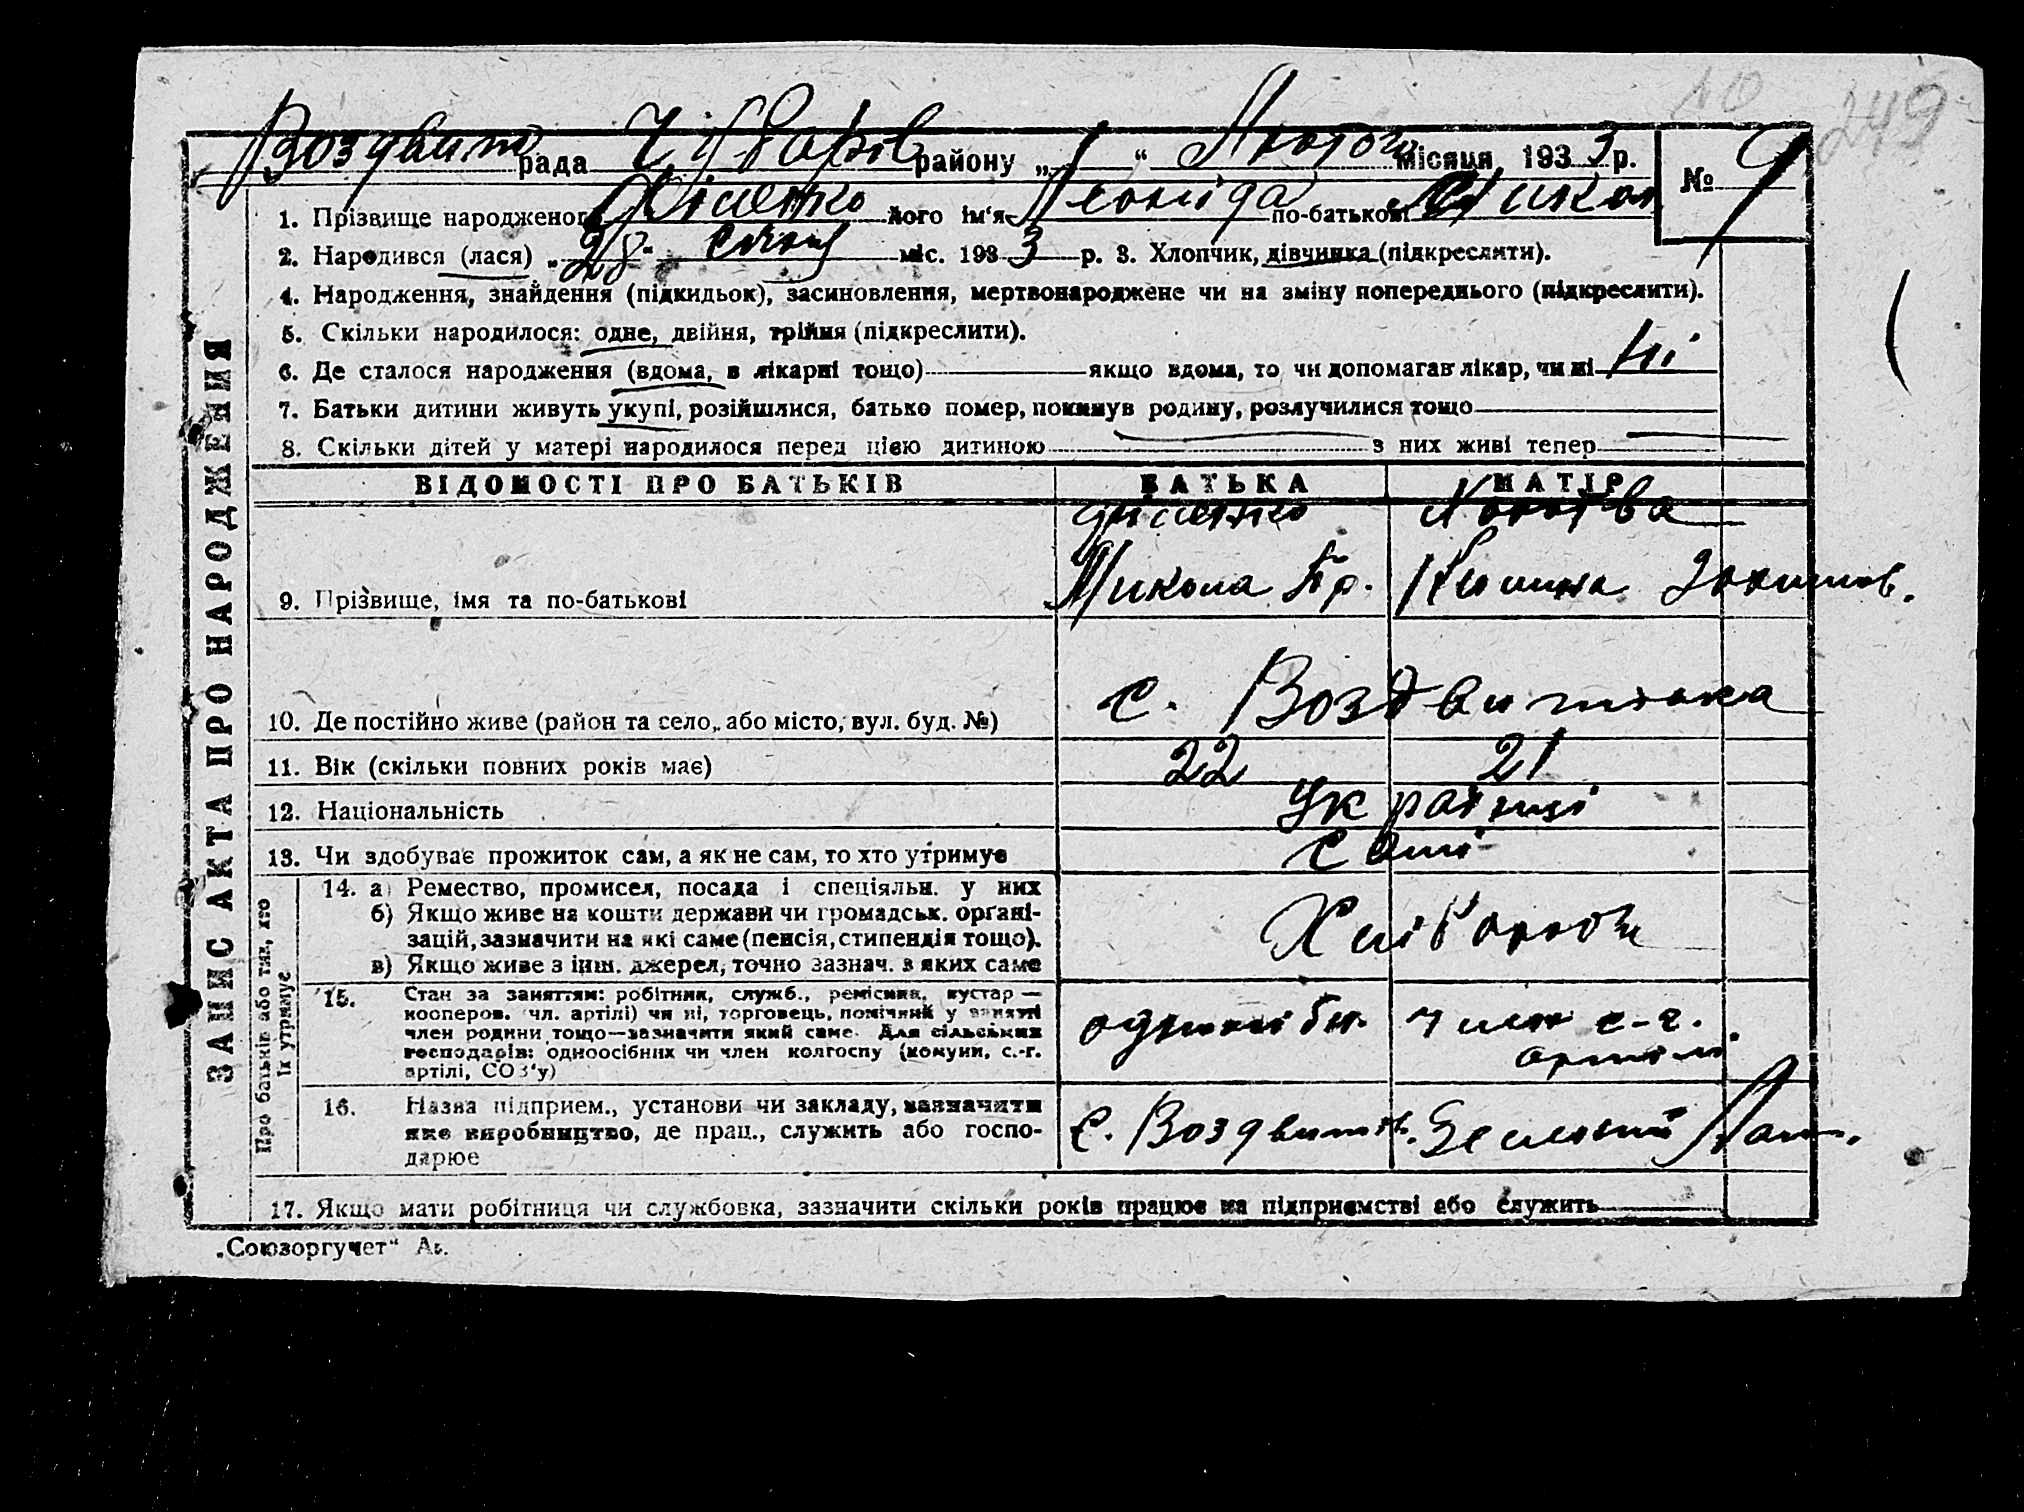 10 249
Воздвиж рада Чубарів району „1“ Лютого місяця 1933 р. № 9
1. Прізвище народженого його ім'я Леоніда по-батькові Микол
2. Народився (лася) „28“ січня міс. 1933 р. 3. Хлопчик, дівчинка (підкреслити).
4. Народження, знайдення (підкидьок), засиновлення, мертвонароджене чи на зміну попереднього (підкреслити).
5. Скільки народилося: одне, двійня, трійня (підкреслити).
6. Де сталося народження (вдома, в лікарні тощо) якщо вдома, то чи допомагав лікар, чи ні ні
7. Батьки дитини живуть укупі, розійшлися, батько помер, покинув родину, розлучилися тощо
8. Скільки дітей у матері народилося перед цією дитиною з них живі тепер
ЗАПИС АКТА ПРО НАРОДЖЕНИЯ
ВІДОМОСТІ ПРО БАТЬКІВ БАТЬКА МАТІР
9. Прізвище, імя та по-батькові Микола
10. Де постійно живе (район та село, або місто, вул. буд. №) с. Воздвижівка
11. Вік (скільки повних років має) 22 21
12. Національність Українці
13. Чи здобуває прожиток сам, а як не сам, то хто утримує Самі
Про батьків або тих, хто їх утримує
14. а) Ремество, промисел, посада і спеціяльн. у них
б) Якщо живе на кошти держави чи громадськ. органі-
зацій, зазначити на які саме (пенсія, стипендія тощо).
в) Якщо живе з інш. джерел, точно зазнач. з яких саме
Хлібороби
15. Стан за заняттям: робітник, служб., ремісник, кустар —
кооперов. чл. артілі) чи ні, торговець, помічний у занятті
член родини тощо—зазначити який саме. Для сільських
господарів: одноосібник чи член колгоспу (комуни, с.-г.
артілі, СОЗ'у)
член с-г.
артілі
16. Назва підприєм., установи чи закладу, зазначити
яке виробництво, де прац., служить або госпо-
дарює
с. Воздвижів.
17. Якщо мати робітниця чи службовка, зазначити скільки років працює на підприємстві або служить
„Союзоргучет“